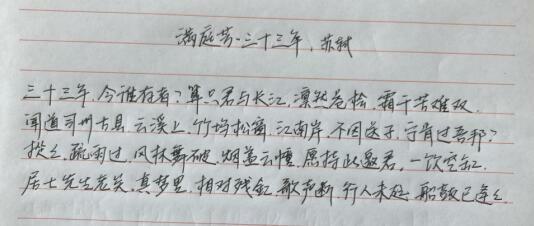 满庭芳·三十三年，苏轼
三十三年，今谁存者？算只君与长江，凛然苍桧，霜干苦难双．
闻道司州古县，云溪上，竹坞松窗，江南岸，不因送子，宁肯过吾邦？
摐摐，疏雨过，风林舞破，烟盖云幢，愿持此邀君，一饮空缸．
居士先生老矣，真梦里，相对残釭，歌声断，行人未起，船鼓已逄逄．